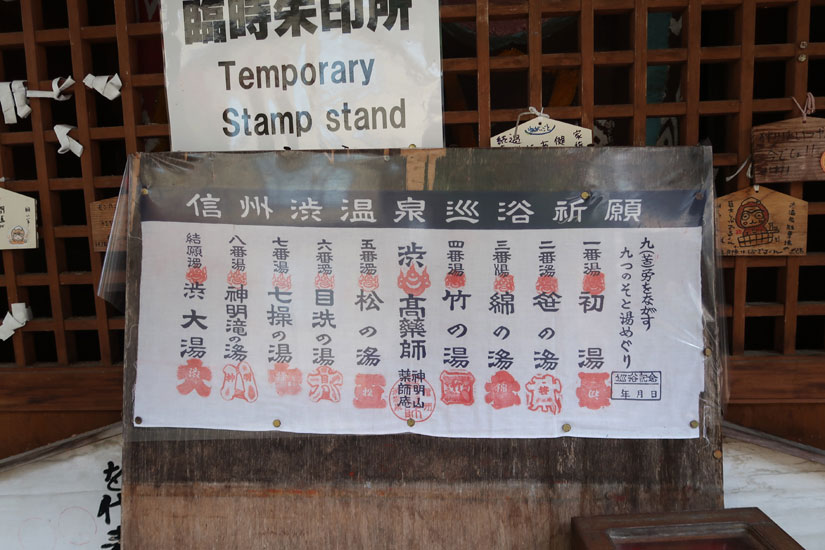 臨時朱印所
Temporary
Stamp stand
信州渋温泉巡浴祈願
九(苦)労をながす
九つのそと湯めぐり
巡浴記念
年月日
一番湯 初湯
二番湯 笹の湯
三番湯 綿の湯
四番湯 竹の湯
渋高薬師 神明山 薬師庵
五番湯 松の湯
六番湯 目洗の湯
七番湯 七操の湯
八番湯 神明滝の湯
結願湯 渋大湯
を代表